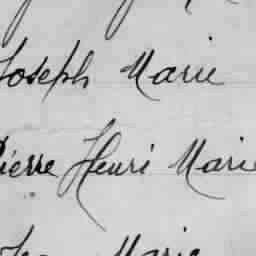 Joseph Marie
Pierre Henri Marie
Marie